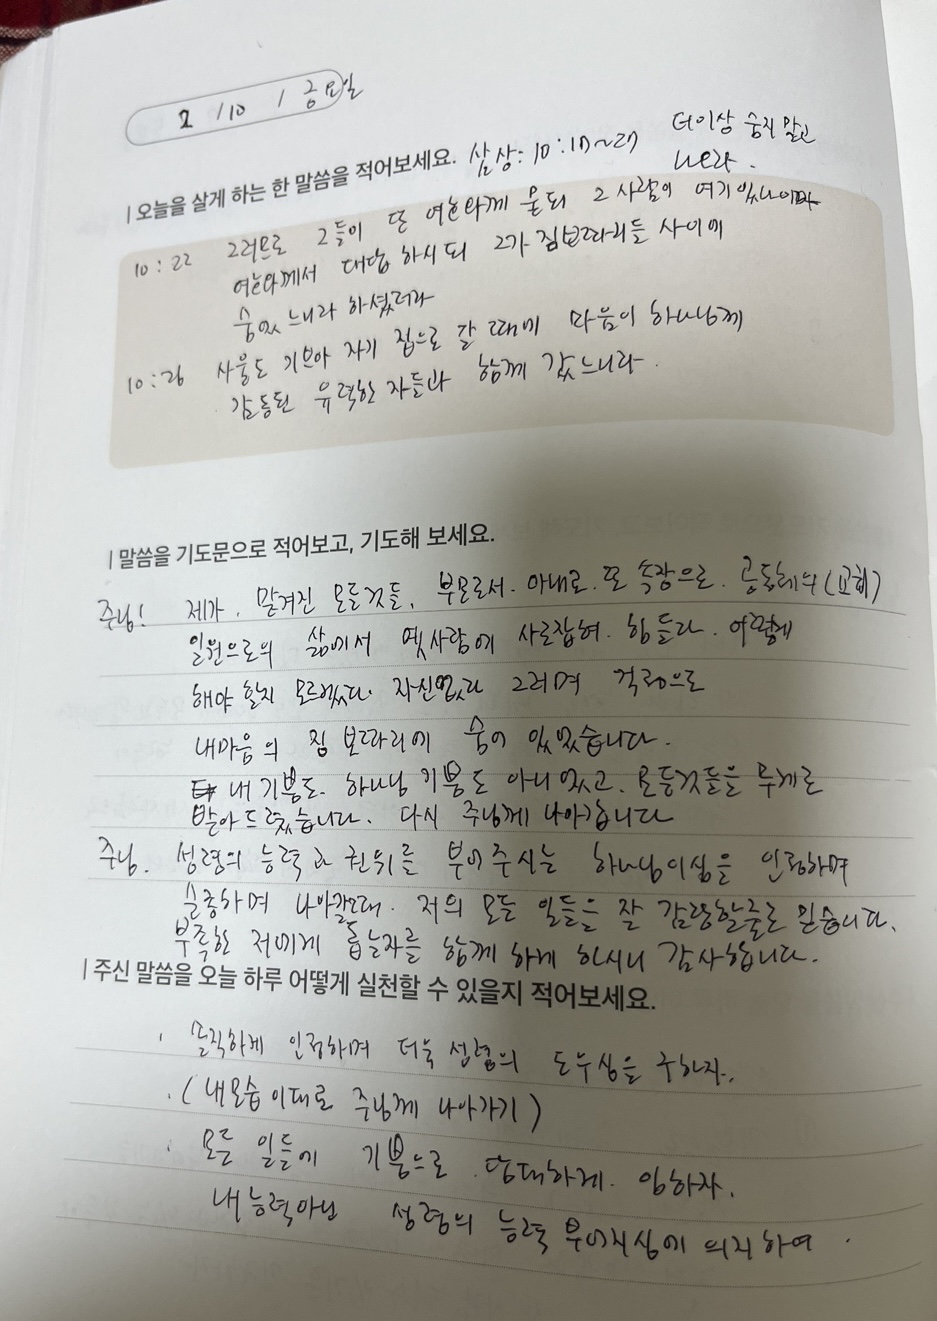 2 / 10 / 금요일
오늘을 살게 하는 한 말씀을 적어보세요. 삼상: 10:17~27 더이상 숨지 말고
나오라.
10:22 그러므로 그들이 또 여호와께 묻되 그 사람이 여기 있나이까
여호와께서 대답 하시되 그가 짐보따리들 사이에
숨었느니라 하셨더라
10:26 사울도 기브아 자기 집으로 갈 때에 마음이 하나님께
감동된 유력한 자들과 함께 갔느니라.
말씀을 기도문으로 적어보고, 기도해 보세요.
주님! 제가. 맡겨진 모든것들, 부모로서. 아내로. 또 속장으로. 공동체의 (교회)
일원으로의 삶에서 옛사람에 사로잡혀. 힘들다. 어떻게
해야 할지 모르겠다. 자신없다 그러며 걱정으로
내마음의 짐 보따리에 숨어 있었습니다.
내 기쁨도. 하나님 기쁨도 아니었고. 모든것들을 무게로
받아드렸습니다. 다시 주님께 나아갑니다
주님. 성령의 능력과 권위를 부어주시는 하나님이심을 인정하며
순종하며 나아갈때. 저의 모든 일들을 잘 감당할줄로 믿습니다.
부족한 저에게 돕는자를 함께 하게 하시니 감사합니다.
주신 말씀을 오늘 하루 어떻게 실천할 수 있을지 적어보세요.
· 솔직하게 인정하며 더욱 성령의 도우심을 구하자.
· (내모습이대로 주님께 나아가기)
· 모든 일들에 기쁨으로 담대하게. 임하자.
내 능력아닌 성령의 능력 부어지심에 의지하여.